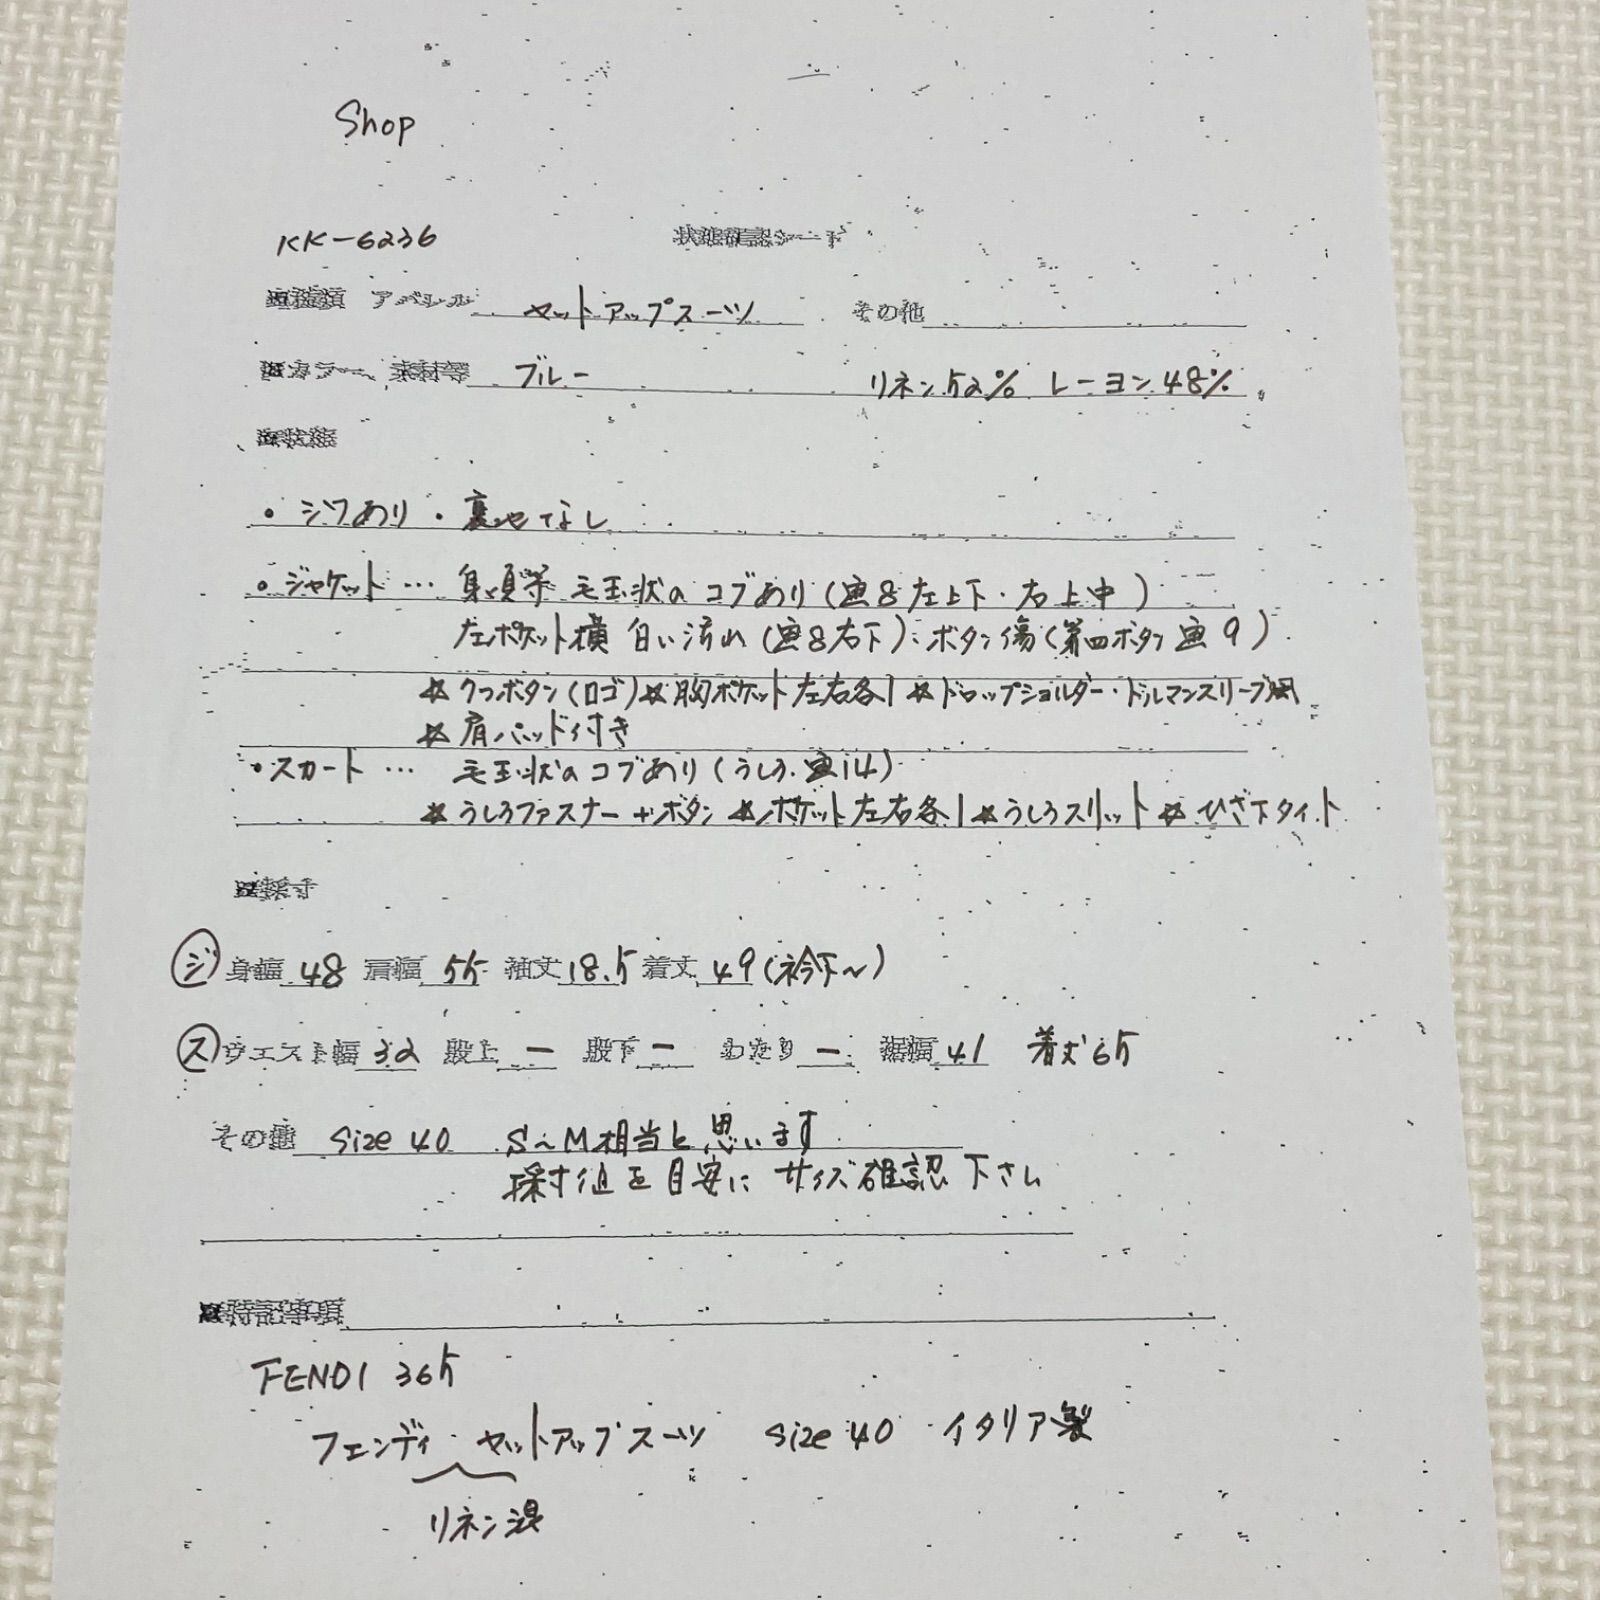 Shop
KK-6236 状態確認シート
■種類 アパレル セットアップスーツ その他
■カラー、素材等 ブルー リネン52% レーヨン48%
■状態
・シワあり ・裏地なし
・ジャケット… 身頃等 毛玉状のコブあり(画8左上下・右上中)
左ポケット横 白い汚れ(画8右下)・ボタン傷(第四ボタン画9)
☆クつボタン(ロゴ)☆胸ポケット左右各1☆ドロップショルダー・ドルマンスリーブ風
☆肩パッド付き
・スカート… 毛玉状のコブあり(うしろ・画14)
☆うしろファスナー+ボタン ☆ポケット左右各1☆うしろスリット☆ひざ下タイト
■採寸
ジ 身幅 48 肩幅 55 袖丈 18.5 着丈 49(衿下~)
ス ウエスト幅 32 股上 ー 股下 ー わたり ー 裾幅 41 着丈65
その他 size 40 S~M相当と思います
採寸値を目安に サイズ確認下さい
■特記事項
FENDI 365
フェンディ セットアップスーツ size 40 イタリア製
リネン混